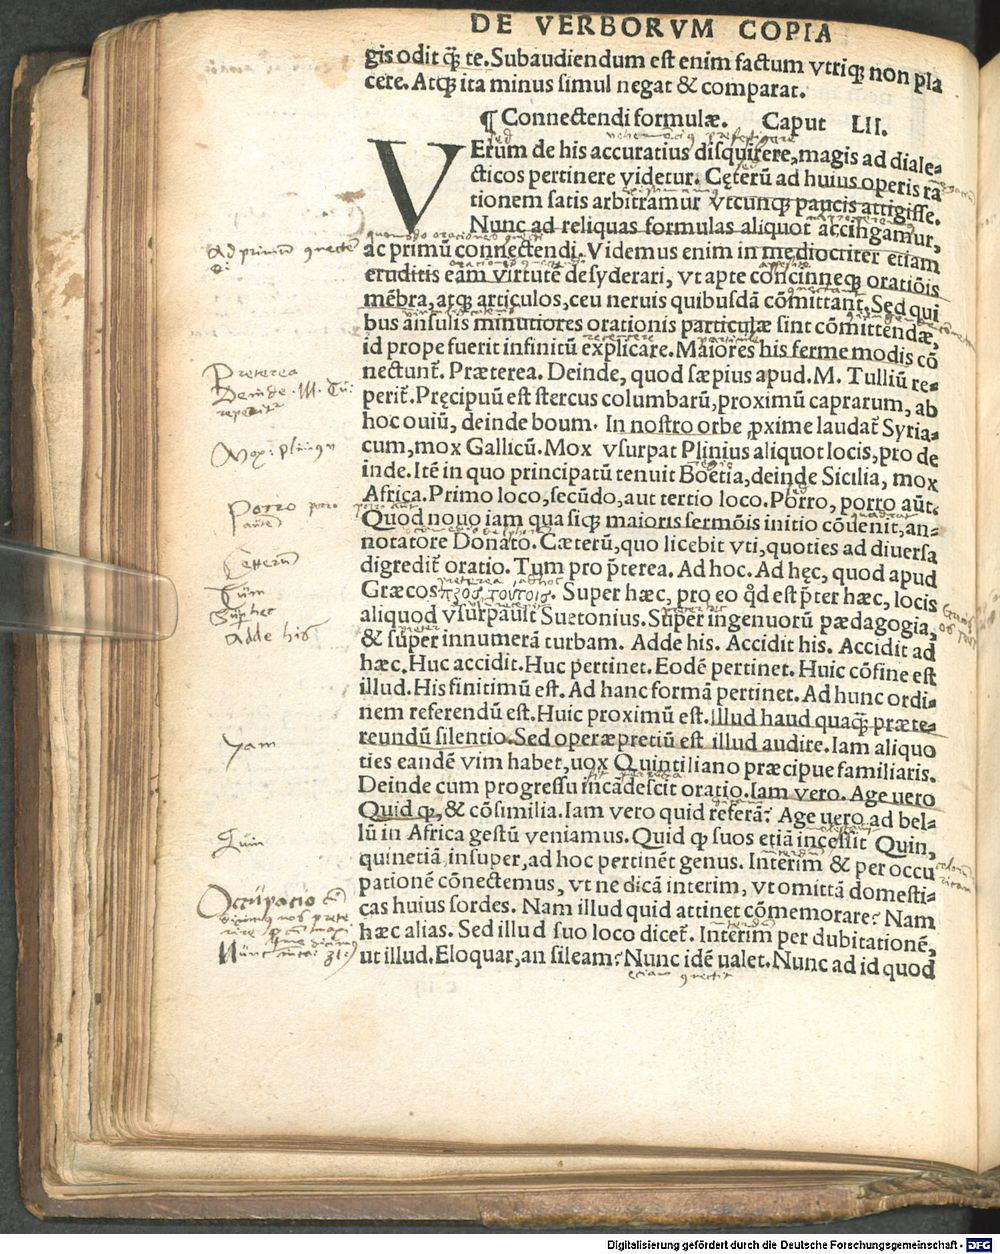 DE VERBORVM COPIA
gis odit q̃ te. Subaudiendum est enim factum vtriqꝫ non pla
cere. Atqꝫ ita minus simul negat & comparat.
¶ Connectendi formulæ. Caput LII.
VErum de his accuratius disquirere, magis ad diale-
cticos pertinere videtur. Cęterũ ad huius operis ra
tionem satis arbitramur vtcunqꝫ paucis attigisse.
Nunc ad reliquas formulas aliquot accingamur,
ac primũ connectendi. Videmus enim in mediocriter etiam
eruditis eam virtutẽ desyderari, vt apte concinneqꝫ oratiõis
mẽbra, atqꝫ articulos, ceu neruis quibusdã cõmittant. Sed qui
bus ansulis minutiores orationis particulæ sint cõmittendæ,
id prope fuerit infinitũ explicare. Maiores his ferme modis cõ
nectunt᷑. Præterea. Deinde, quod sæpius apud. M. Tulliũ re-
perit᷑. Pręcipuũ est stercus columbarũ, proximũ caprarum, ab
hoc ouiũ, deinde boum. In nostro orbe ꝓxime laudat᷑ Syria-
cum, mox Gallicũ. Mox vsurpat Plinius aliquot locis, pro de
inde. Itẽ in quo principatũ tenuit Boetia, deinde Sicilia, mox
Africa. Primo loco, secũdo, aut tertio loco. Porro, porro aũt.
Quod nouo iam quasiqꝫ maioris sermõis initio cõuenit, an-
notatore Donato. Cæterũ, quo licebit vti, quoties ad diuersa
digredit᷑ oratio. Tum pro p̃terea. Ad hoc. Ad hęc, quod apud
Græcos προς τουτοις. Super hæc, pro eo q̃d est p̃ter hæc, locis
aliquod vsurpauit Suetonius. Super ingenuorũ pædagogia,
& super innumerã turbam. Adde his. Accidit his. Accidit ad
hæc. Huc accidit. Huc pertinet. Eodẽ pertinet. Huic cõfine est
illud. His finitimũ est. Ad hanc formã pertinet. Ad hunc ordi-
nem referendũ est. Huic proximũ est. illud haud quaq̃ præte-
reundũ silentio. Sed operæpretiũ est illud audire. Iam aliquo
ties eandẽ vim habet, uox Quintiliano præcipue familiaris.
Deinde cum progressu incadescit oratio. Iam vero. Age uero
Quid qꝫ, & cõsimilia. Iam vero quid referã? Age uero ad bel-
lũ in Africa gestũ veniamus. Quid qꝫ suos etiã incessit Quin,
quinetiã, insuper, ad hoc pertinẽt genus. Interim & per occu
pationẽ cõnectemus, vt ne dicã interim, vt omittã domesti-
cas huius sordes. Nam illud quid attinet cõmemorare? Nam
hæc alias. Sed illud suo loco dicet᷑. Interim per dubitationẽ,
ut illud. Eloquar, an sileam? Nunc idẽ ualet. Nunc ad id quod
Preterea
Deinde . M. Tũ:
reperit᷑
Mox: plinius
Porro
Ceterũ
Tum
Super hec
Adde his
Jam
Quin
Occupacio
Nunc
Digitalisierung gefördert durch die Deutsche Forschungsgemeinschaft - DFG